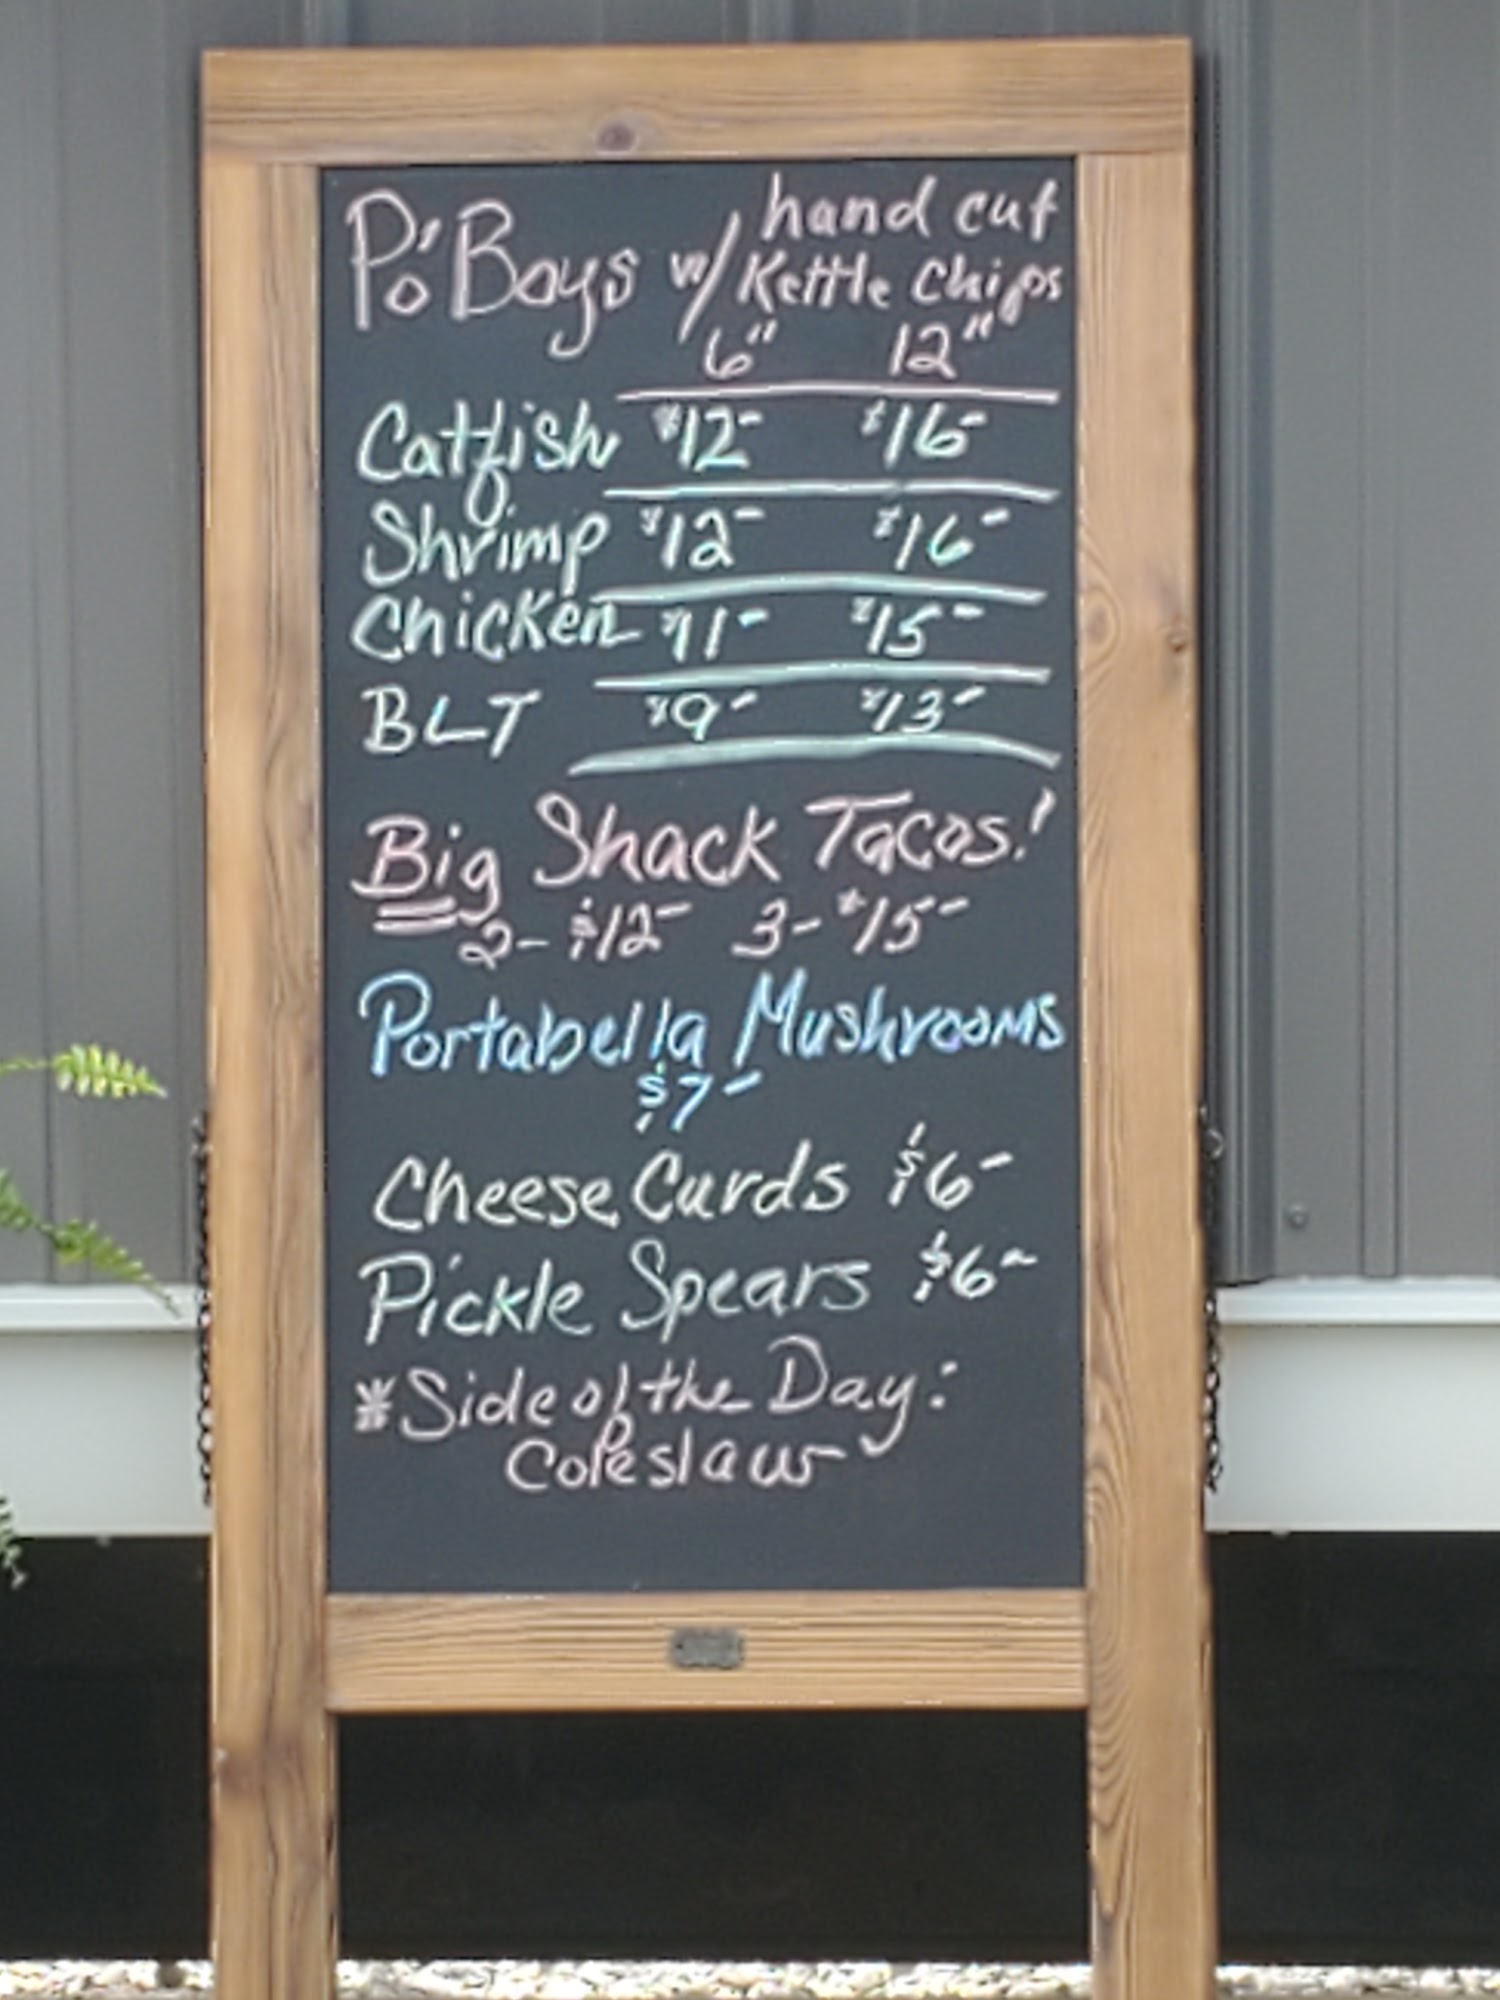 Po'Boys w/ hand cut
Kettle Chips
6" 12"
Catfish $12- $16-
Shrimp $12- $16-
Chicken $11- $15-
BLT $9- $13-
Big Shack Tacos!
2- $12- 3- $15-
Portabella Mushrooms
$7-
Cheese Curds $6-
Pickle Spears $6-
*Side of the Day:
Coleslaw